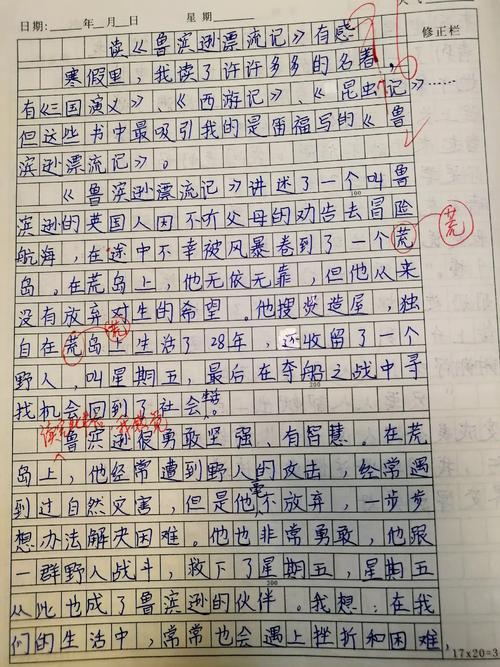 日期: 年 月 日 星期 修正栏
读《鲁滨逊漂流记》有感
寒假里，我读了许许多多的名著，
有《三国演义》、《西游记》、《昆虫记》……
但这些书中最吸引我的是笛福写的《鲁
滨逊漂流记》。
《鲁滨逊漂流记》讲述了一个叫鲁
100
滨逊的英国人因不听父母的劝告去冒险
航海，在途中不幸被风暴卷到了一个荒 荒
岛。在荒岛上，他无依无靠，但他从来
没有放弃对生的希望。他搜炎造屋，独
荒
自在荒岛上生活了28年，还收留了一个
野人，叫星期五，最后在夺船之战中寻
200
找机会回到了社会。
鲁滨逊很勇敢坚强、有智慧。在荒
岛上，他经常遭到野人的攻击，经常遇
到过自然灾害，但是他毫不放弃，一步步
想办法解决困难。他也非常勇敢，他跟
一群野人战斗，救下了星期五，星期五
300
从此也成了鲁滨逊的伙伴。我想：在我
们的生活中，常常也会遇上挫折和困难，
17x20=3